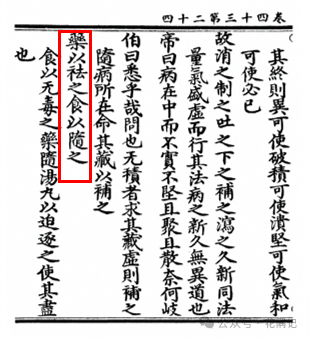 卷四十三第二十四
其終則異可使破積可使潰堅可使氣和
可使必已
故消之制之吐之下之補之瀉之久新同法
量氣盛虛而行其法病之新久無異道也
帝曰病在中而不實不堅且聚且散奈何岐
伯曰悉乎哉問也无積者求其藏虛則補之
隨病所在命其藏以補之
藥以祛之食以隨之
食以无毒之藥隨湯丸以迫逐之使其盡
也
公众号·花隅记